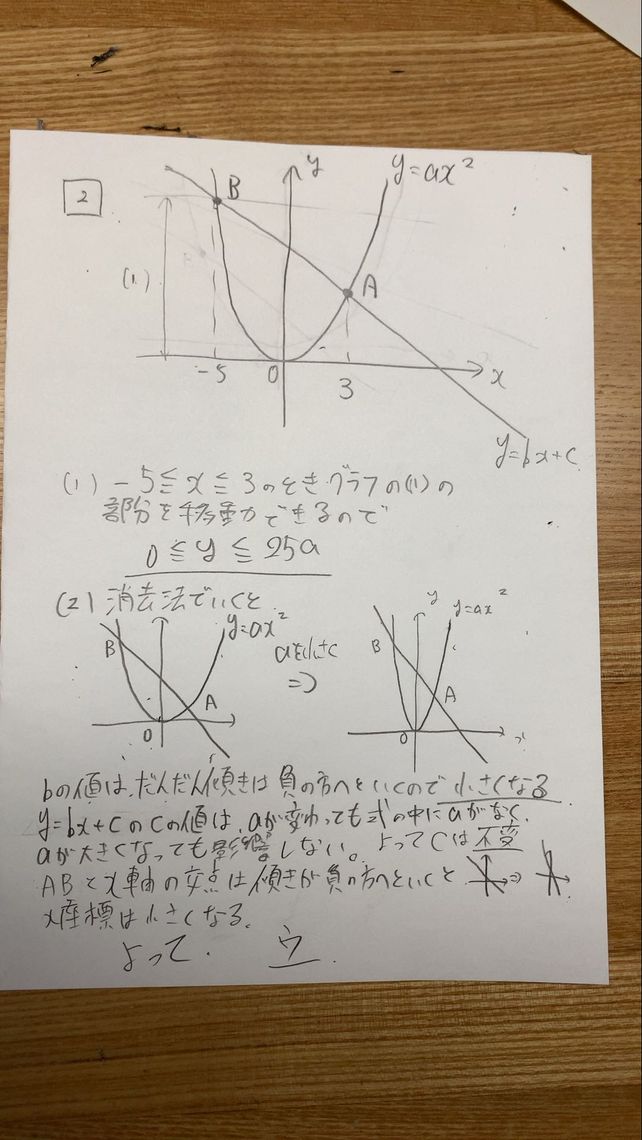 2
y
y=ax²
B
(1)
A
-5
0
3
x
y=bx+c
(1) -5≦x≦3のときグラフの(1)の
部分を移動できるので
0≦y≦25a
(2) 消去法でいくと
y=ax²
B
A
0
aを小さく
⇒
y
y=ax²
B
A
0
x
bの値は、だんだん傾きは負の方へといくので小さくなる
y=bx+cのcの値は、aが変わっても式の中にaがなく、
aが大きくなっても影響しない。よってcは不変
ABとx軸の交点は傾きが負の方へといくと ⇒
x座標は小さくなる。
よって. ウ.